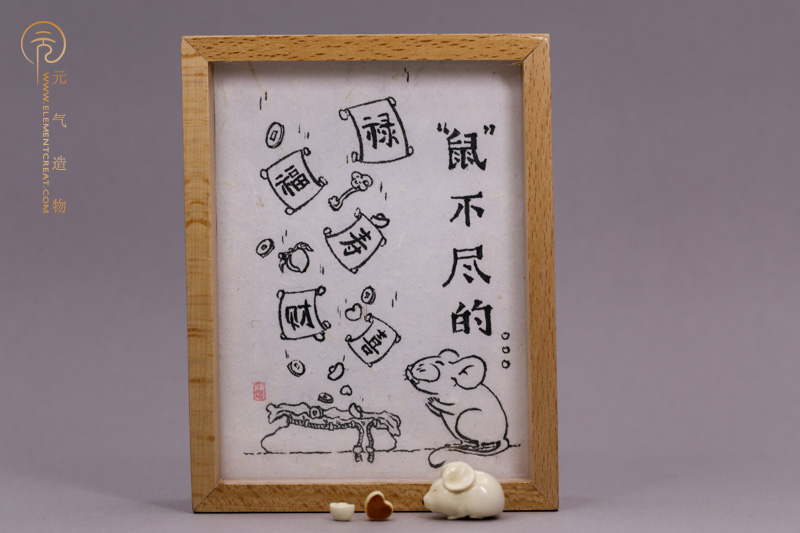 元气造物
WWW.ELEMENTCREAT.COM
“鼠”不尽的...
禄
福
寿
财
喜